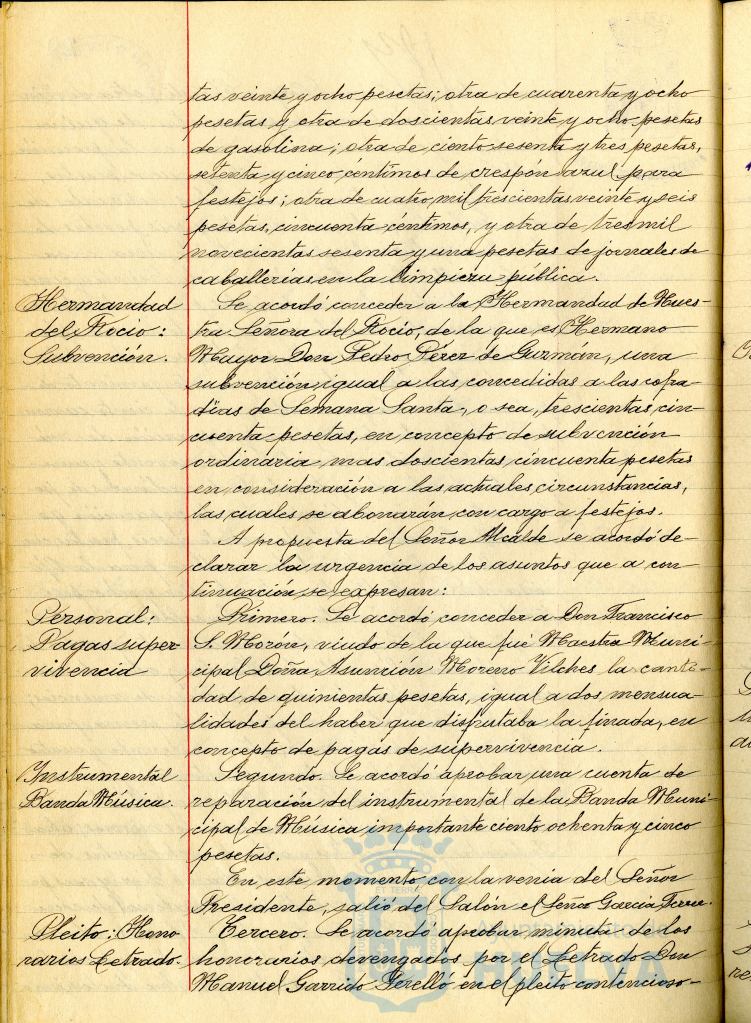 tas veinte y ocho pesetas; otra de cuarenta y ocho
pesetas y otra de doscientas veinte y ocho pesetas
de gasolina; otra de ciento sesenta y tres pesetas,
setenta y cinco céntimos de crespón azul para
festejos; otra de cuatro mil trescientas veinte y seis
pesetas, cincuenta céntimos, y otra de tres mil
novecientas sesenta y una pesetas de jornales de
caballerías en la limpieza pública.
Hermandad
del Rocio:
Subvención.
Se acordó conceder a la Hermandad de Nues-
tra Señora del Rocio, de la que es Hermano
Mayor Don Pedro Pérez de Guzman, una
subvención igual a las concedidas a las cofra-
días de Semana Santa, o sea, trescientas cin-
cuenta pesetas, en concepto de subvención
ordinaria mas doscientas cincuenta pesetas
en consideración a las actuales circunstancias,
las cuales se abonarán con cargo a festejos.
A propuesta del Señor Alcalde se acordó de-
clarar la urgencia de los asuntos que a con-
tinuación se expresan:
Personal:
Pagas super-
vivencia
Primero. Se acordó conceder a Don Francisco
S. Morón, viudo de la que fué Maestra Muni-
cipal Doña Asunción Moreno Vilches la canti-
dad de quinientas pesetas, igual a dos mensua-
lidades del haber que disfrutaba la finada, en
concepto de pagas de supervivencia.
Instrumental
Banda Música.
Segundo. Se acordó aprobar una cuenta de
reparación del instrumental de la Banda Muni-
cipal de Música importante ciento ochenta y cinco
pesetas.
En este momento con la venia del Señor
Presidente, salió del Salón el Señor García Ferrer.
Pleito: Hono
rarios Letrado.
Tercero. Se acordó aprobar minuta de los
honorarios devengados por el Letrado Don
Manuel Garrido Perelló en el pleito contencioso-
HUELVA